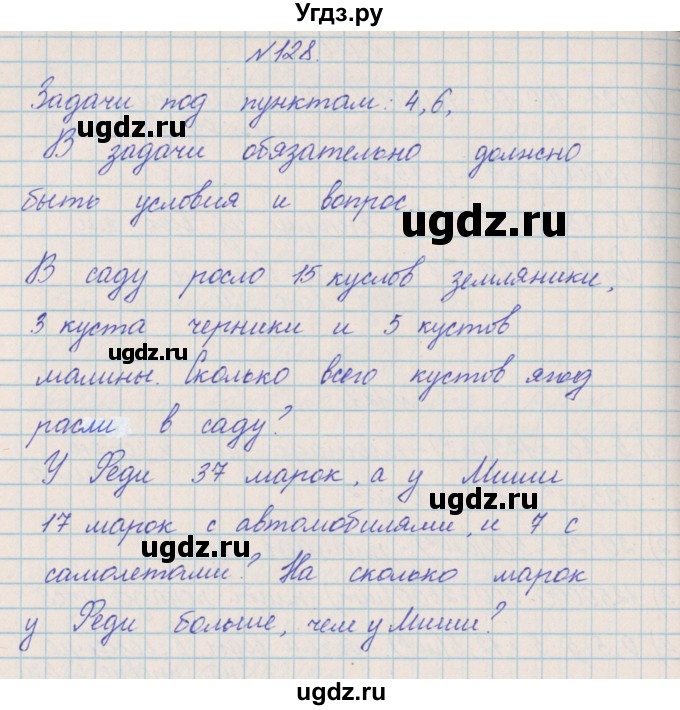 Угдз.ру
№128.
Задачи под пунктам: 4,6,
ugdz.ru
В задачи обязательно должно
быть условия и вопрос
ugdz.ru
В саду росло 15 куслов земляники,
3 куста черники и 5 кустов
ugdz.ru
малины. Сколько всего кустов ягод
расли в саду?
У Феди 37 марок, а у Миши
ugdz.ru
17 марок с автомобилями, и 7 с
ugdz.ru
самолетами? На сколько марок
у Феди больше, чем у Миши?
ugdz.ru